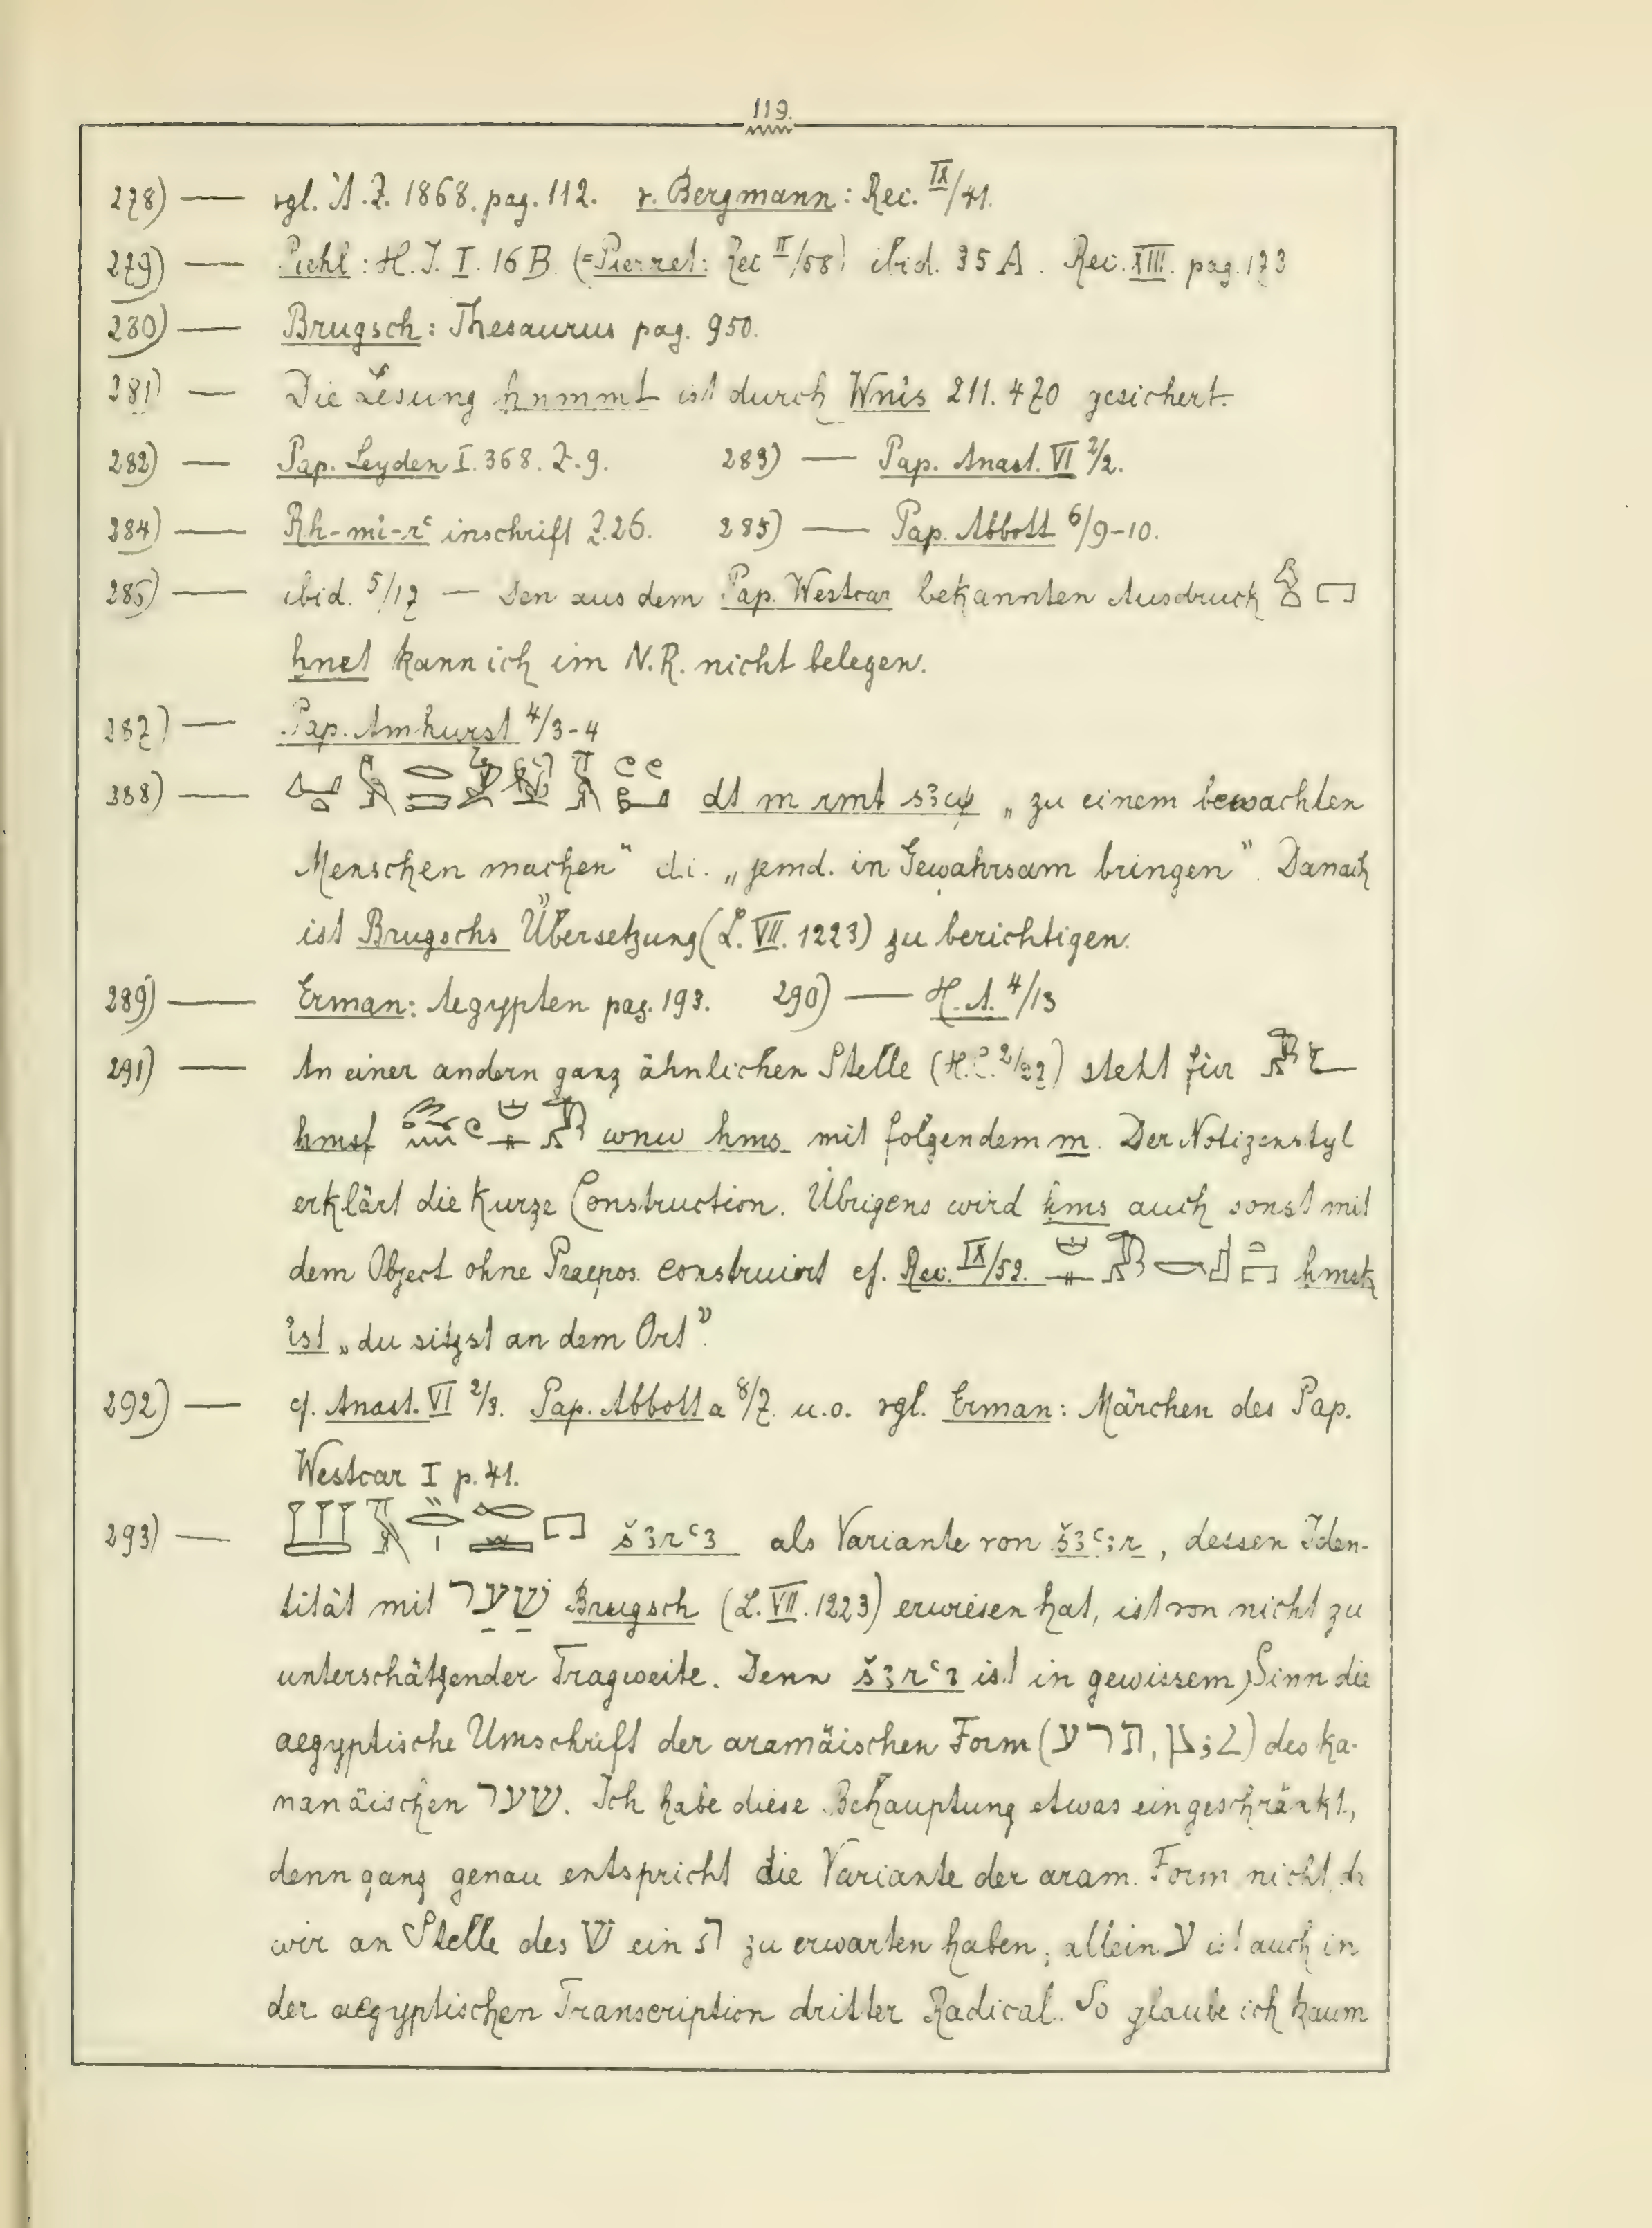 119.
278) — vgl. Ä.Z. 1868. pag. 112. v. Bergmann: Rec. IX/41.
279) — Piehl: H.I. I. 16 B. (= Pierret: Rec II/58) ibid. 35 A. Rec. XIII. pag. 173
280) — Brugsch: Thesaurus pag. 950.
281) — Die Lesung ḥnmmt ist durch Wnis 211. 470 gesichert.
282) — Pap. Leyden I. 368. Z. 9. 283) — Pap. Anast. VI 2/2.
284) — Rḫ-mi-rꜥ inschrift Z. 26. 285) — Pap. Abbott 6/9-10.
285) — ibid. 5/17 — Den aus dem Pap. Westcar bekannten Ausdruck
ḫnet kann ich im N.R. nicht belegen.
287) — Pap. Amhurst 4/3-4
388) — dt m rmt „zu einem bewachten
Menschen machen" d.i. „jemd. in Gewahrsam bringen". Danach
ist Brugschs Übersetzung (L. VII. 1223) zu berichtigen.
289) — Erman: Aegypten pag. 193. 290) — H.A. 4/13
291) — An einer andern ganz ähnlichen Stelle steht für
ḥmsf wnw ḥms mit folgendem m. Der Notizenstyl
erklärt die kurze Construction. Übrigens wird ḥms auch sonst mit
dem Object ohne Praepos. construiert cf. Rec. IX/52.
ist „du sitzst an dem Ort".
292) — cf. Anast. VI 2/3. Pap. Abbott a 8/7 u.o. vgl. Erman: Märchen des Pap.
Westcar I p. 41.
293) — šꜣrꜥꜣ als Variante von šꜣꜥꜣr, dessen Iden-
tität mit שׁער Brugsch (L. VII. 1223) erwiesen hat, ist von nicht zu
unterschätzender Tragweite. Denn šꜣrꜥꜣ ist in gewissem Sinn die
aegyptische Umschrift der aramäischen Form (תרע, ) des ka-
nanäischen שער. Ich habe diese Behauptung etwas eingeschränkt,
denn ganz genau entspricht die Variante der aram. Form nicht, da
wir an Stelle des שׁ ein ת zu erwarten haben; allein ע ist auch in
der aegyptischen Transcription dritter Radical. So glaube ich kaum